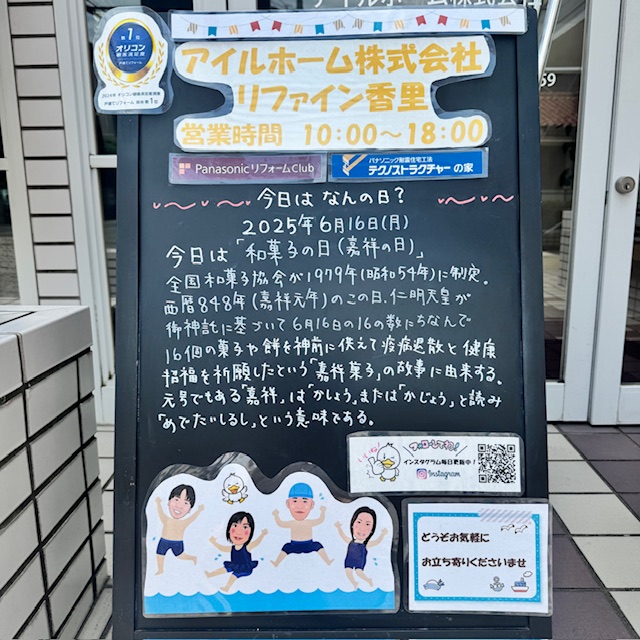 アイルホーム株式会社
第1位
オリコン
顧客満足度
戸建てリフォーム
アイルホーム株式会社
リファイン香里
営業時間 10:00〜18:00
Panasonic リフォームClub
パナソニック耐震住宅工法
テクノストラクチャーの家
59
今日は なんの日?
2025年6月16日(月)
今日は「和菓子の日(嘉祥の日)」
全国和菓子協会が1979年(昭和54年)に制定。
西暦848年(嘉祥元年)のこの日、仁明天皇が
御神託に基づいて6月16日の16の数にちなんで
16個の菓子や餅を神前に供えて疫病退散と健康
招福を祈願したという「嘉祥菓子」の故事に由来する。
元号でもある「嘉祥」は「かしょう」または「かじょう」と読み
「めでたいしるし」という意味である。
いいね!
フォローしてネ!
インスタグラム毎日更新中!
Instagram
どうぞお気軽に
お立ち寄りくださいませ